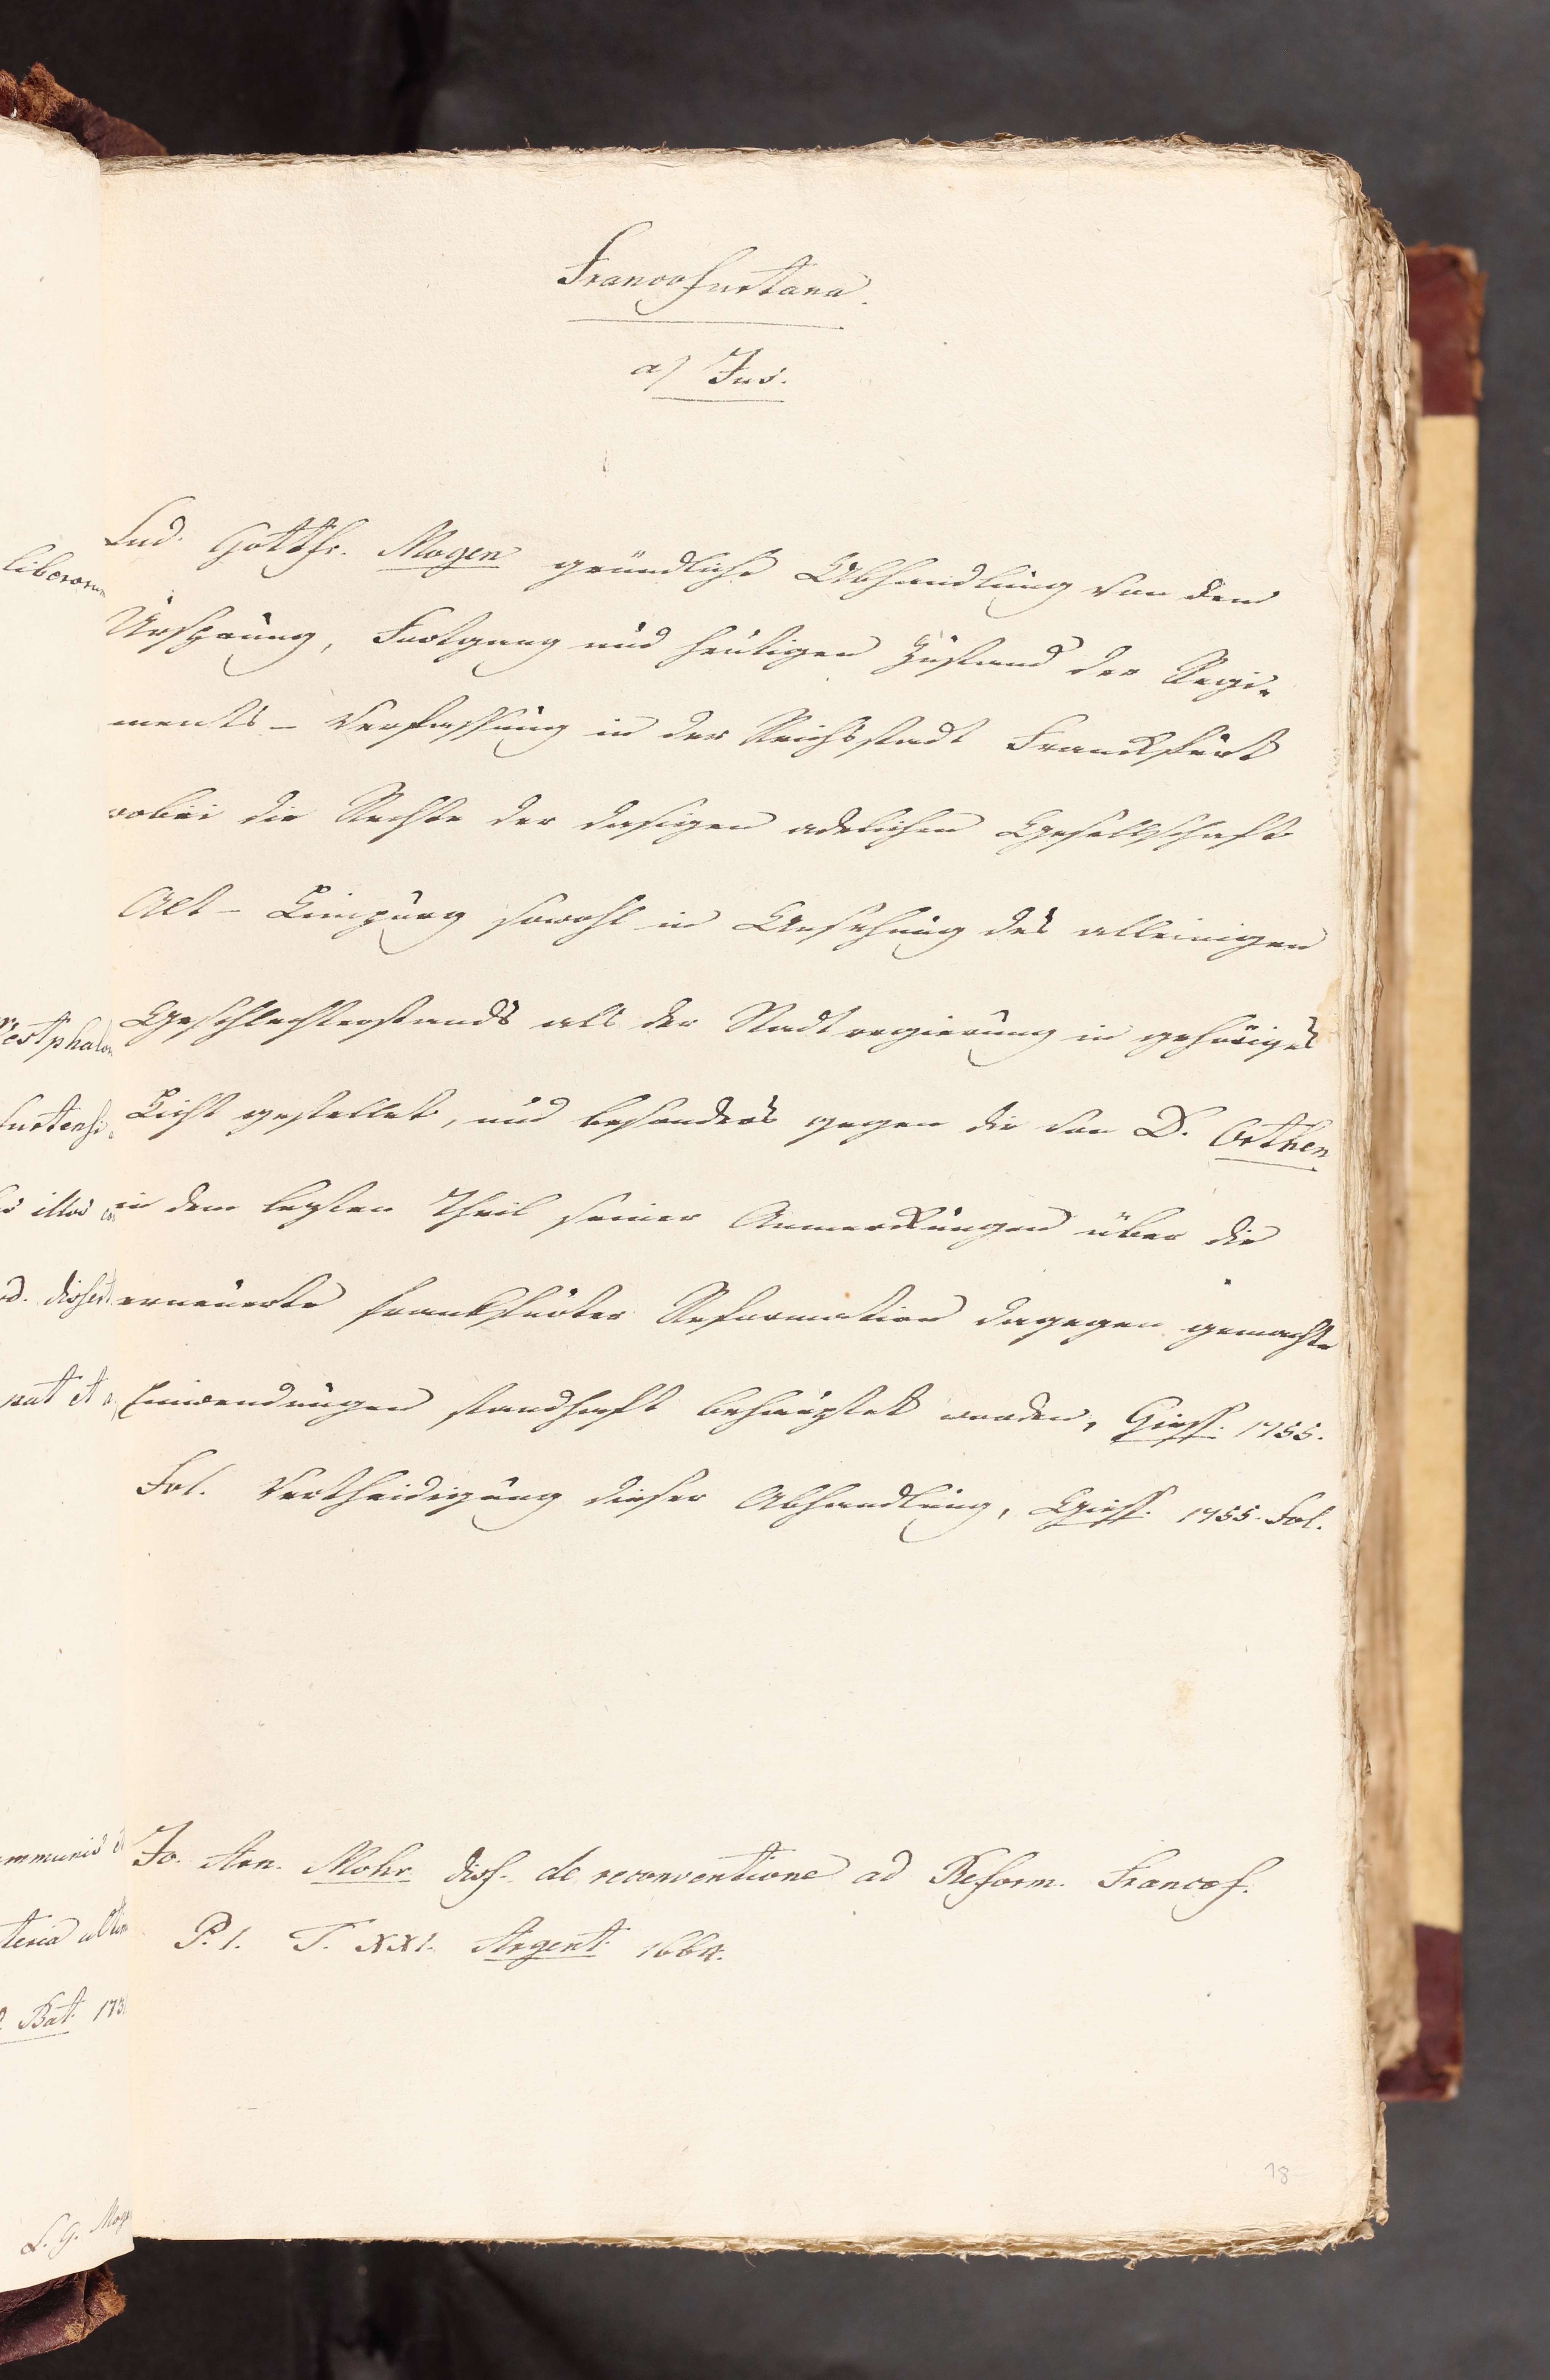 Francofurtana.
a) Jus.
Lud. Gottfr. Mogen gründliche Abhandlung von dem
Ursprung, Fortgang und heutigen Zustand der Regi-
ments-Verfassung in der Reichsstadt Franckfurt
wobei die Rechte der dasigen adelichen Gesellschaft
Alt-Limpurg sowohl in Ansehung des alleinigen
Geschlechterstands als der Stadtregierung in gehöriges
Licht gestellet, und besonders gegen die von D. Orthen
in dem lezten Theil seiner Anmerckungen über die
erneuerte franckfurter Reformation dagegen gemachte
Einwendungen standhaft behauptet werden, Giess. 1755.
Fol. Vertheidigung dieser Abhandlung, Giess. 1755. Fol.
Jo. Arn. Mohr. diss. de reconventione ad Reform. Francof.
P. I. T. XXI. Argent. 1664.
18
liberorum
Westphalor
furtensi
illos
dissert
pat et
ommunis
teria
Bat. 173
L. G. Mog